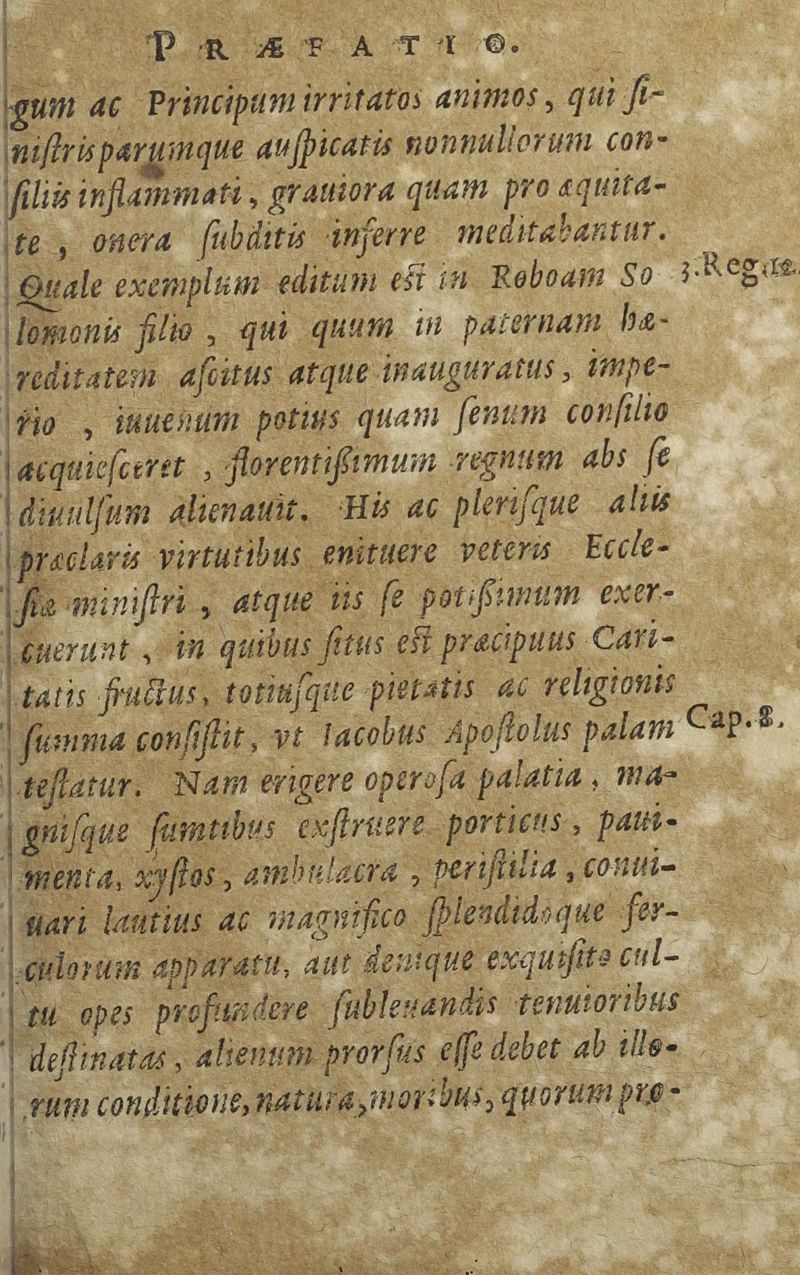 PRÆFATIO.
gum ac Principum irritatos animos, qui ſi-
niſtris parumque auſpicatis nonnullorum con-
ſiliis inflammati, grauiora quam pro æquita-
te, onera ſubditis inferre meditabantur.
Quale exemplum editum est in Roboam So
3. Reg. 12.
lomonis filio, qui quum in paternam hæ-
reditatem aſcitus atque inauguratus, impe-
rio, iuuenum potius quam ſenum conſilio
acquieſceret, florentiſſimum regnum abs ſe
diuulſum alienauit. His ac pleriſque aliis
præclaris virtutibus enituere veteris Eccle-
ſiæ miniſtri, atque iis ſe potiſſimum exer-
cuerunt, in quibus ſitus est præcipuus Cari-
tatis fructus, totiuſque pietatis ac religionis
ſumma conſiſtit, vt Iacobus Apoſtolus palam
Cap. 2.
teſtatur. Nam erigere operoſa palatia, ma-
gniſque ſumtibus exſtruere porticus, paui-
menta, xyſtos, ambulacra, periſtilia, conui-
uari lautius ac magnifico ſplendidoque fer-
culorum apparatu, aut denique exquiſito cul-
tu opes profundere ſubleuandis tenuioribus
deſtinatas, alienum prorſus eſſe debet ab illo-
rum conditione, natura, moribus, quorum pro-